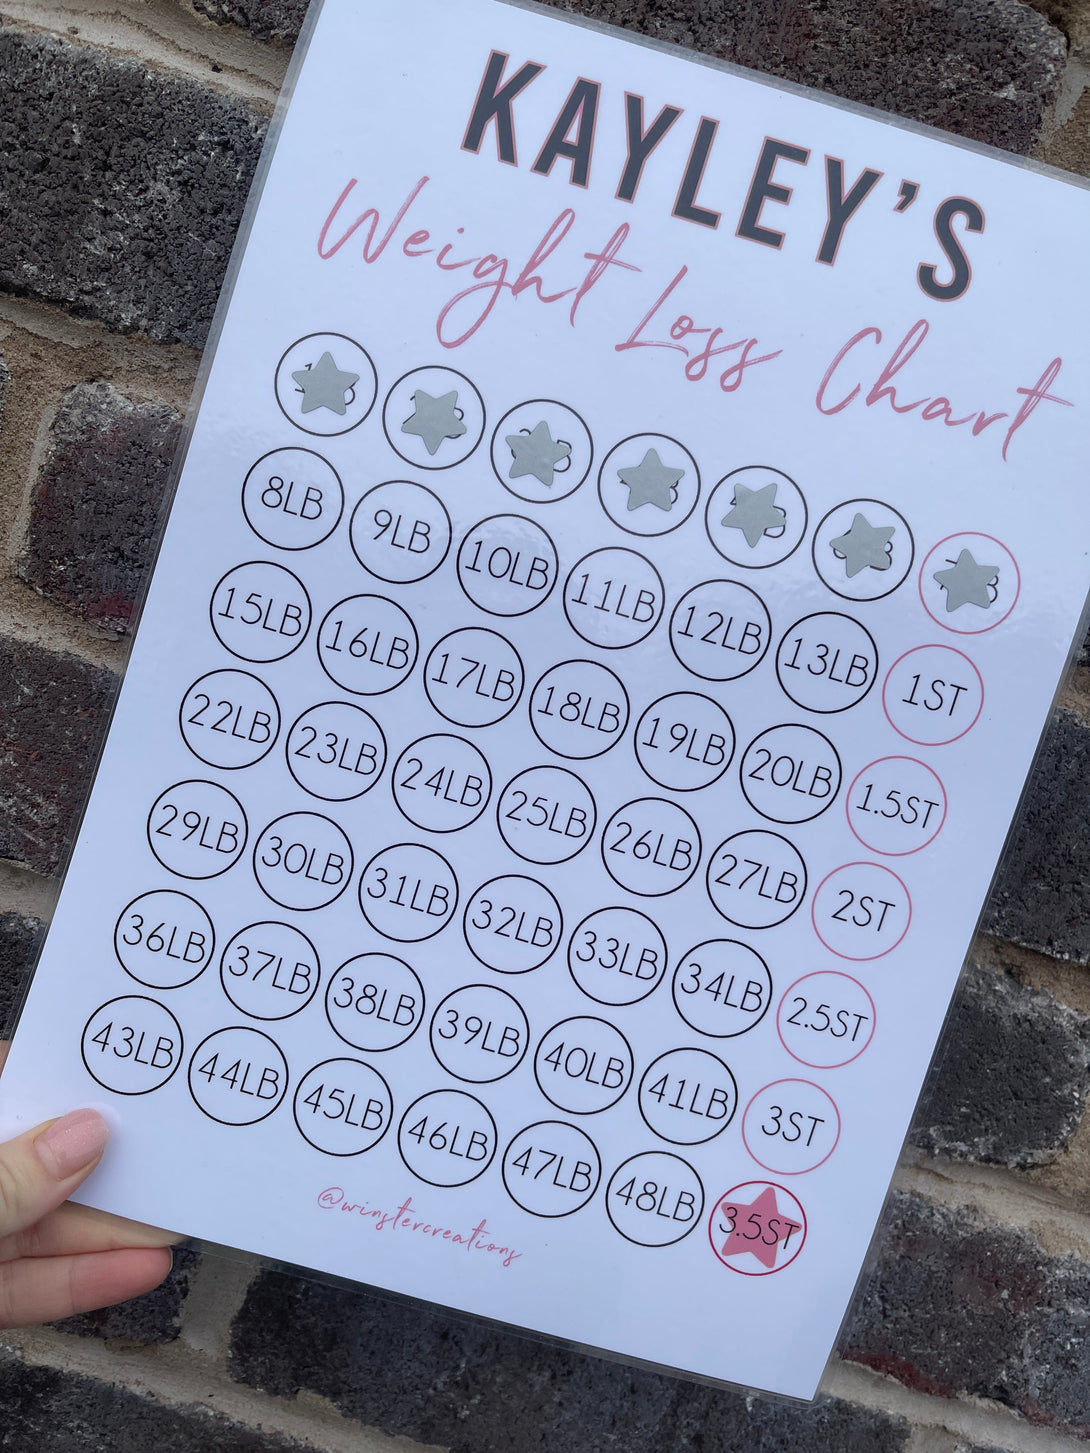 KAYLEY'S
Weight Loss Chart
8LB 9LB 10LB 11LB 12LB 13LB 1ST
15LB 16LB 17LB 18LB 19LB 20LB 1.5ST
22LB 23LB 24LB 25LB 26LB 27LB 2ST
29LB 30LB 31LB 32LB 33LB 34LB 2.5ST
36LB 37LB 38LB 39LB 40LB 41LB 3ST
43LB 44LB 45LB 46LB 47LB 48LB 3.5ST
@winstercreations